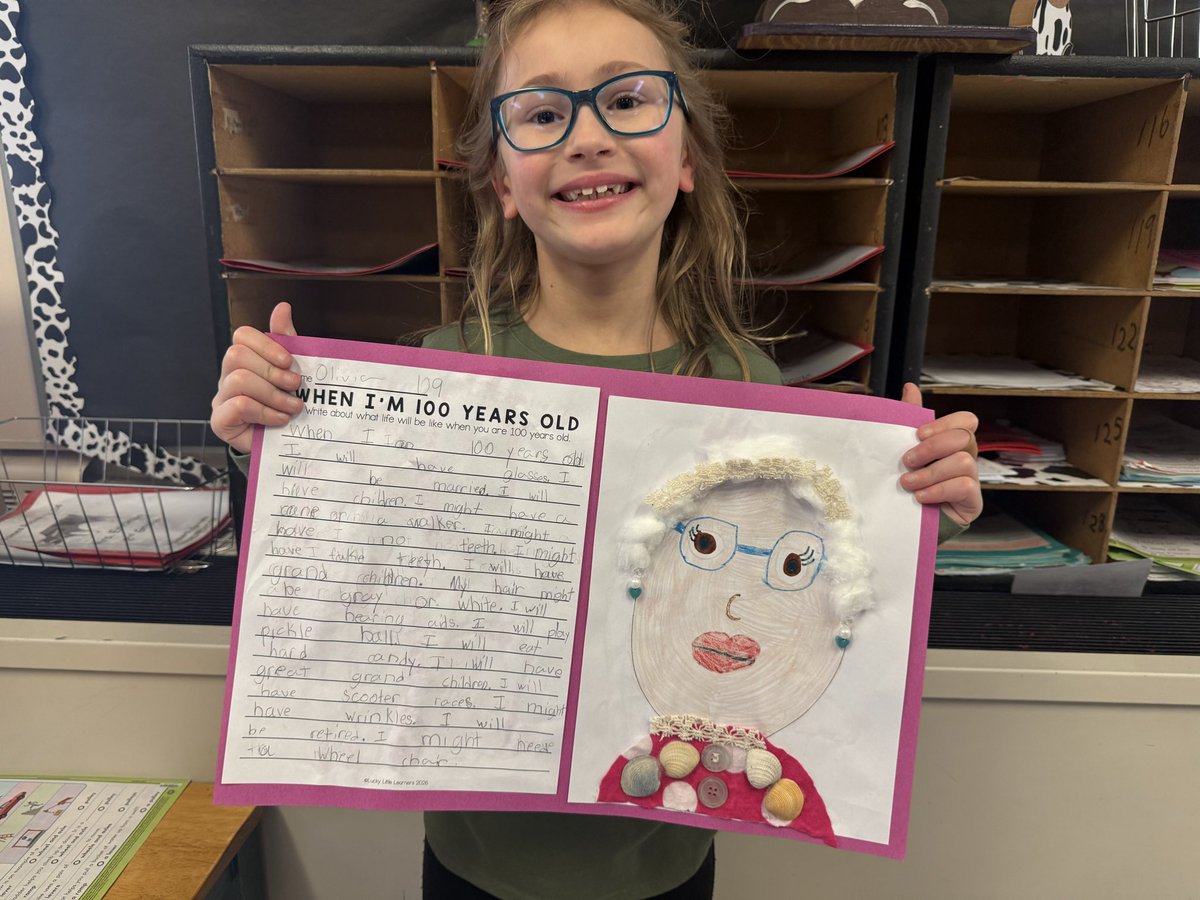 me Olivia 129
WHEN I'M 100 YEARS OLD
Write about what life will be like when you are 100 years old.
When I am 100 years old
I will have glasses. I
will be married. I will
have children. I might have a
cane or a walker. I might
have not teeth. I might
have fake teeth. I will have
grand children. My hair might
be gray or white. I will
have hearing aids. I will play
pickle ball. I will eat
hard candy. I will have
great grand children. I will
have scooter races. I might
have wrinkles. I will
be retired. I might
a wheel chair.
©Lucky Little Learners 2026
116
119
122
125
128